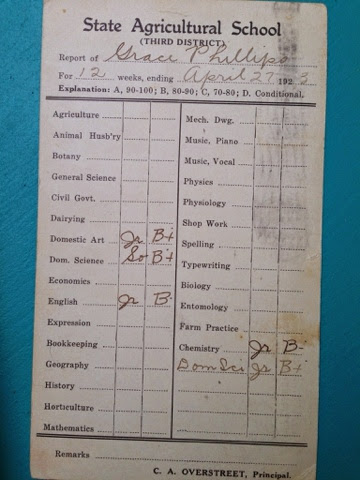 State Agricultural School
(THIRD DISTRICT)
Report of Grace Phillips
For 12 weeks, ending April 27 192
Explanation: A, 90-100; B, 80-90; C, 70-80; D. Conditional.
Agriculture
Animal Husb'ry
Botany
General Science
Civil Govt.
Dairying
Domestic Art Jr B+
Dom. Science So B+
Economics
English Jr B-
Expression
Bookkeeping
Geography
History
Horticulture
Mathematics
Mech. Dwg.
Music, Piano
Music, Vocal
Physics
Physiology
Shop Work
Spelling
Typewriting
Biology
Entomology
Farm Practice
Chemistry Jr B-
Dom Sci Jr B+
Remarks
C. A. OVERSTREET, Principal.